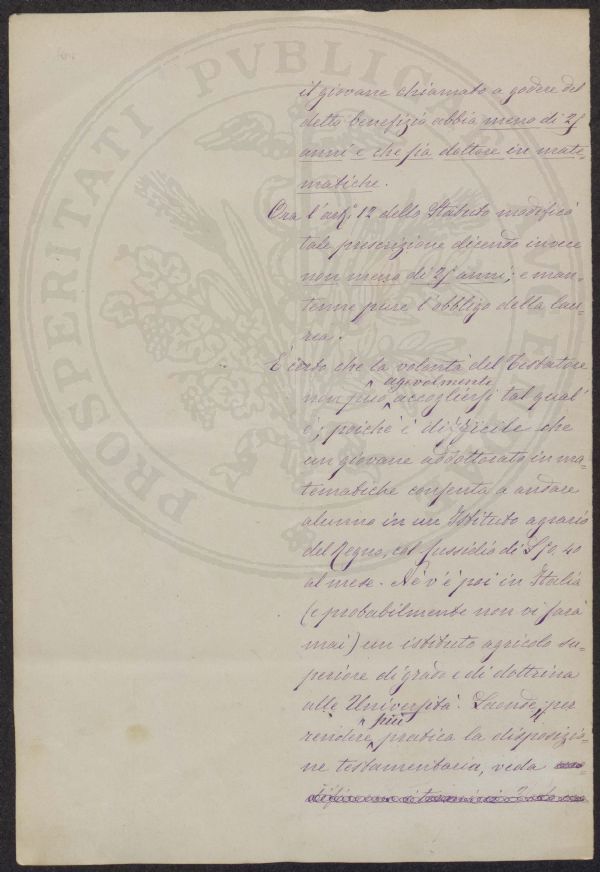 PROSPERITATI PVBLICAE AVGENDAE
il giovane chiamato a godere del
detto benefizio abbia meno di 25
anni e che sia dottore in mate-
matiche.
Ora l'art.° 12 dello Statuto modificò
tale prescrizione dicendo invece
non meno di 25 anni; e man-
tenne pure l'obbligo della lau-
rea.
È certo che la volontà del Testatore
non può agevolmente accogliersi tal qual'
è; poichè è difficile che
un giovane addottorato in ma-
tematiche consenta a andare
alunno in un Istituto agrario
del Regno, col sussidio di
al mese. Nè v'è poi in Italia
(e probabilmente non vi sarà
mai) un istituto agricolo su-
periore di grado e di dottrina
alle Università. Laonde, per
rendere più pratica la disposizio-
ne testamentaria, veda